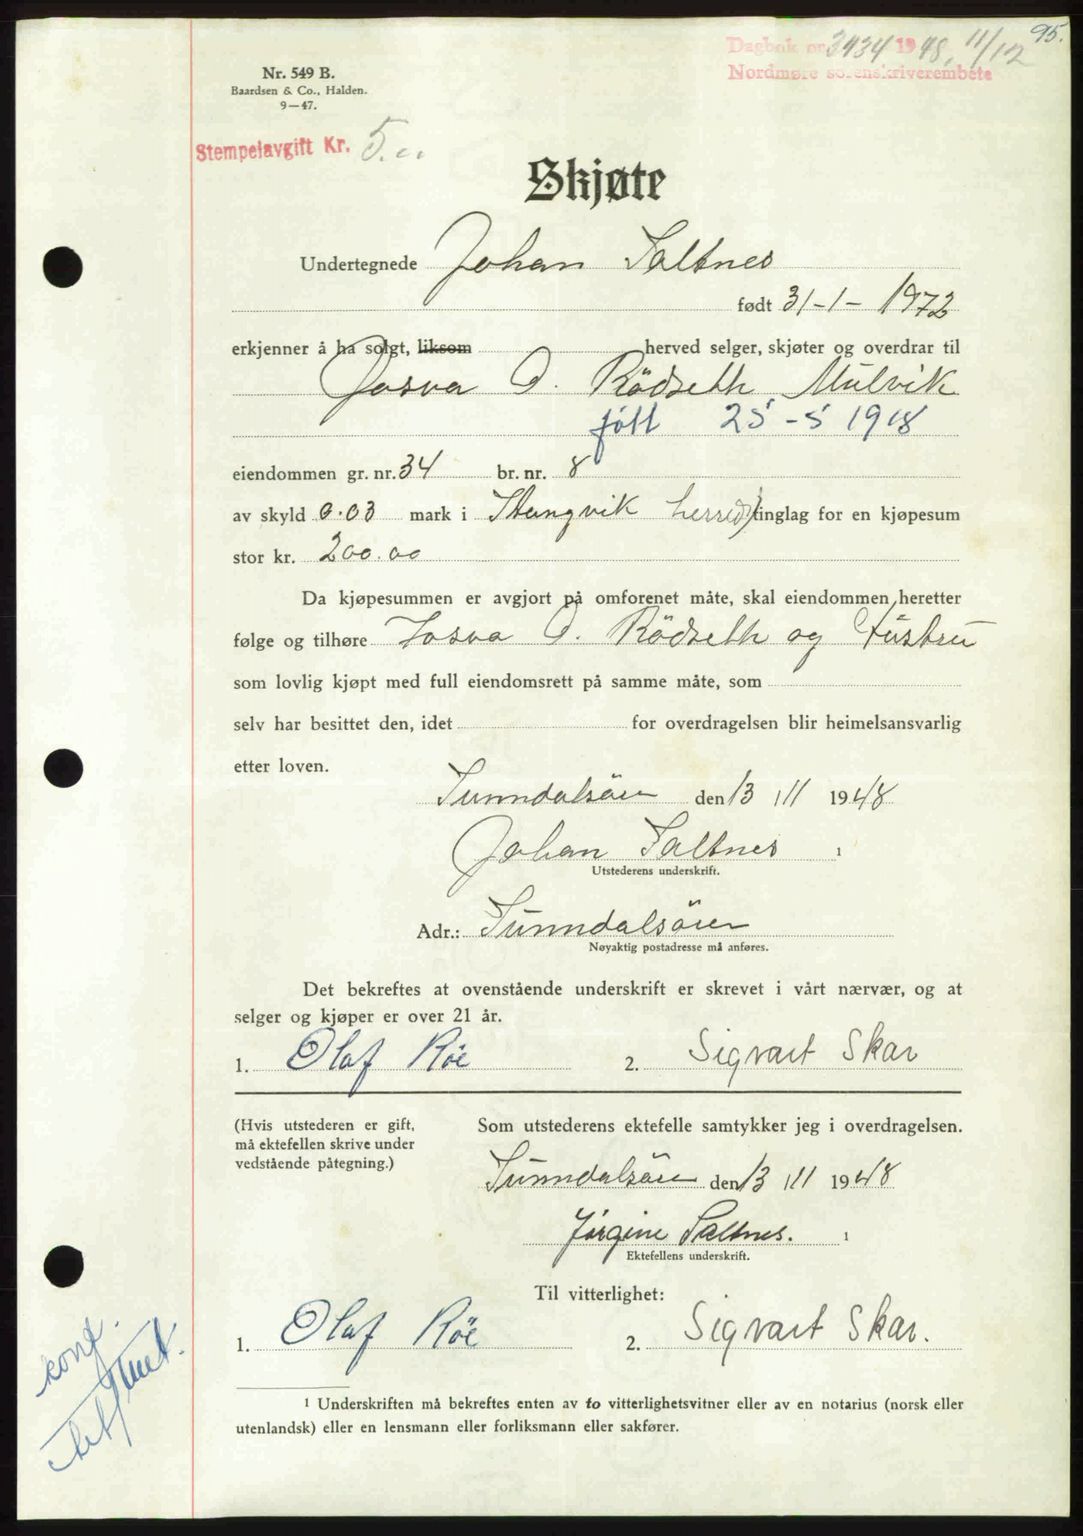 95.
Dagbok nr. 3434 1948. 11/12
Nordmøre sorenskriverembete
Nr. 549 B.
Baardsen & Co., Halden.
9—47.
Stempelavgift Kr. 5.00
Skjøte
Undertegnede Johan Saltnes
født 31-1- 1972
erkjenner å ha solgt, liksom herved selger, skjøter og overdrar til
Josva O. Rödseth Mulvik
født 25-5 1918
eiendommen gr. nr. 34 br. nr. 8
av skyld 0.03 mark i Stangvik herred) tinglag for en kjøpesum
stor kr. 200.00
Da kjøpesummen er avgjort på omforenet måte, skal eiendommen heretter
følge og tilhøre Josva O. Rödseth og Hustru
som lovlig kjøpt med full eiendomsrett på samme måte, som
selv har besittet den, idet for overdragelsen blir heimelsansvarlig
etter loven.
Sunndalsören den 13/11 1948
Johan Saltnes 1
Utstederens underskrift.
Adr.: Sunndalsören
Nøyaktig postadresse må anføres.
Det bekreftes at ovenstående underskrift er skrevet i vårt nærvær, og at
selger og kjøper er over 21 år.
1. Olaf Röe 2. Sigvart Skar
(Hvis utstederen er gift, Som utstederens ektefelle samtykker jeg i overdragelsen.
må ektefellen skrive under
vedstående påtegning.)
Sunndalsören den 13/11 1948
Jörgine Saltnes. 1
Ektefellens underskrift.
Til vitterlighet:
1. Olaf Röe 2. Sigvart Skar.
konf.
1 Underskriften må bekreftes enten av to vitterlighetsvitner eller av en notarius (norsk eller
utenlandsk) eller en lensmann eller forliksmann eller sakfører.